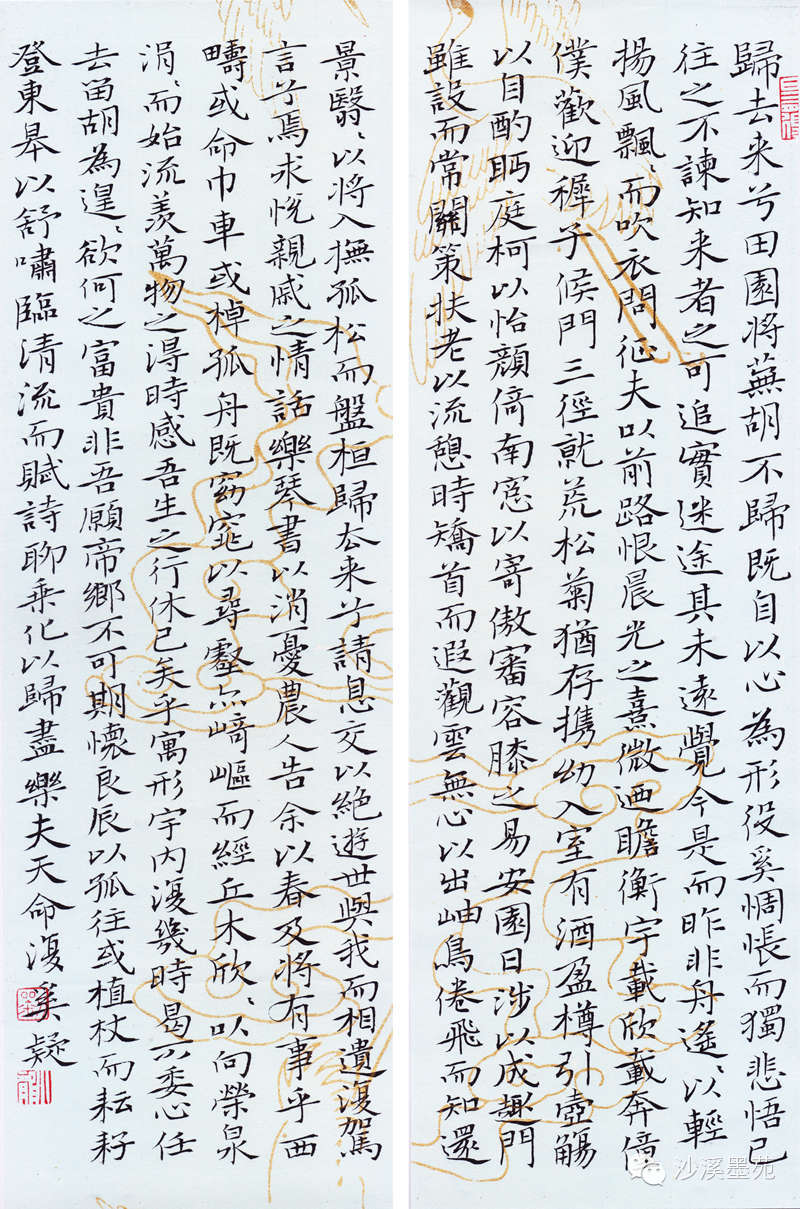 歸去来兮田園將蕪胡不歸既自以心為形役奚惆悵而獨悲悟已
往之不諫知来者之可追實迷途其未遠覺今是而昨非舟遙〻以輕
揚風飄〻而吹衣問征夫以前路恨晨光之熹微迺瞻衡宇載欣載奔僮
僕歡迎穉子候門三徑就荒松菊猶存携幼入室有酒盈樽引壺觴
以自酌眄庭柯以怡顏倚南窓以寄傲審容膝之易安園日涉以成趣門
雖設而常關策扶老以流憩時矯首而遐觀雲無心以出岫鳥倦飛而知還
景翳〻以將入撫孤松而盤桓歸去来兮請息交以絕遊世與我而相遺復駕
言兮焉求悅親戚之情話樂琴書以消憂農人告余以春及將有事乎西
疇或命巾車或棹孤舟既窈窕以尋壑亦崎嶇而經丘木欣〻以向榮泉
涓〻而始流羨萬物之得時感吾生之行休已矣乎寓形宇內復幾時曷不委心任
去畱胡為遑〻欲何之富貴非吾願帝鄉不可期懷良辰以孤往或植杖而耘耔
登東皋以舒嘯臨清流而賦詩聊乘化以歸盡樂夫天命復奚疑
沙溪墨苑